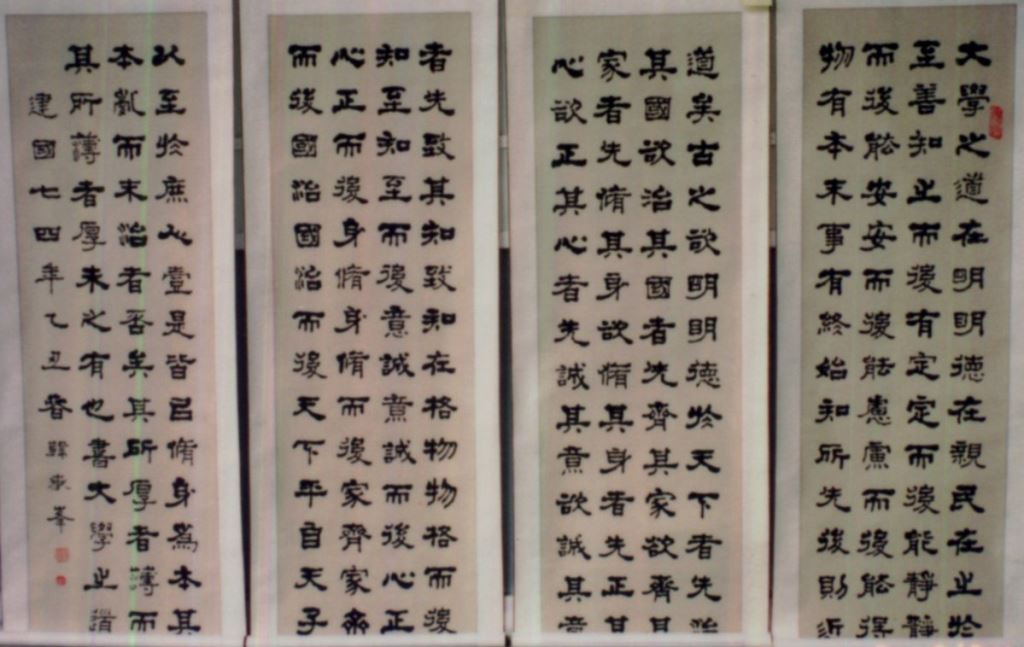 大學之道在明明德在親民在止於
至善知止而後有定定而後能靜靜
而後能安安而後能慮慮而後能得
物有本末事有終始知所先後則近
道矣古之欲明明德於天下者先治
其國欲治其國者先齊其家欲齊其
家者先脩其身欲脩其身者先正其
心欲正其心者先誠其意欲誠其意
者先致其知致知在格物物格而後
知至知至而後意誠意誠而後心正
心正而後身脩身脩而後家齊家齊
而後國治國治而後天下平自天子
以至於庶人壹是皆以脩身為本其
本亂而末治者否矣其所厚者薄而
其所薄者厚未之有也書大學之道
建國七四年乙丑春